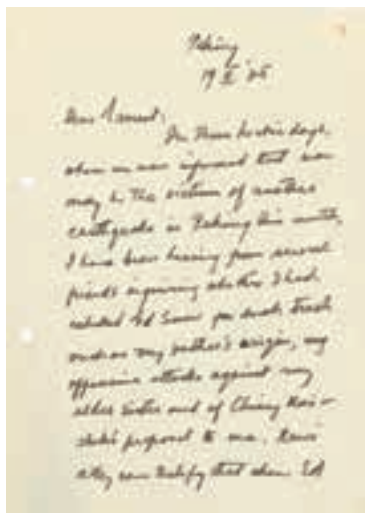 Peking
Dear Ernest:
In these hectic days,
when we were informed that we
may be the victims of another
earthquake in Peking this month,
I have been hearing from several
friends inquiring whether I had
Ed Snow for such trash
my father's origin, my
offensive attacks against my
elder sister and of Chiang Kai-
shek's proposal to me. Rewi
Alley can testify that when Ed